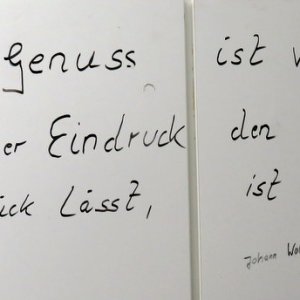 Genuss ist
er Eindruck den
ick Lässt, ist
Johann Wol